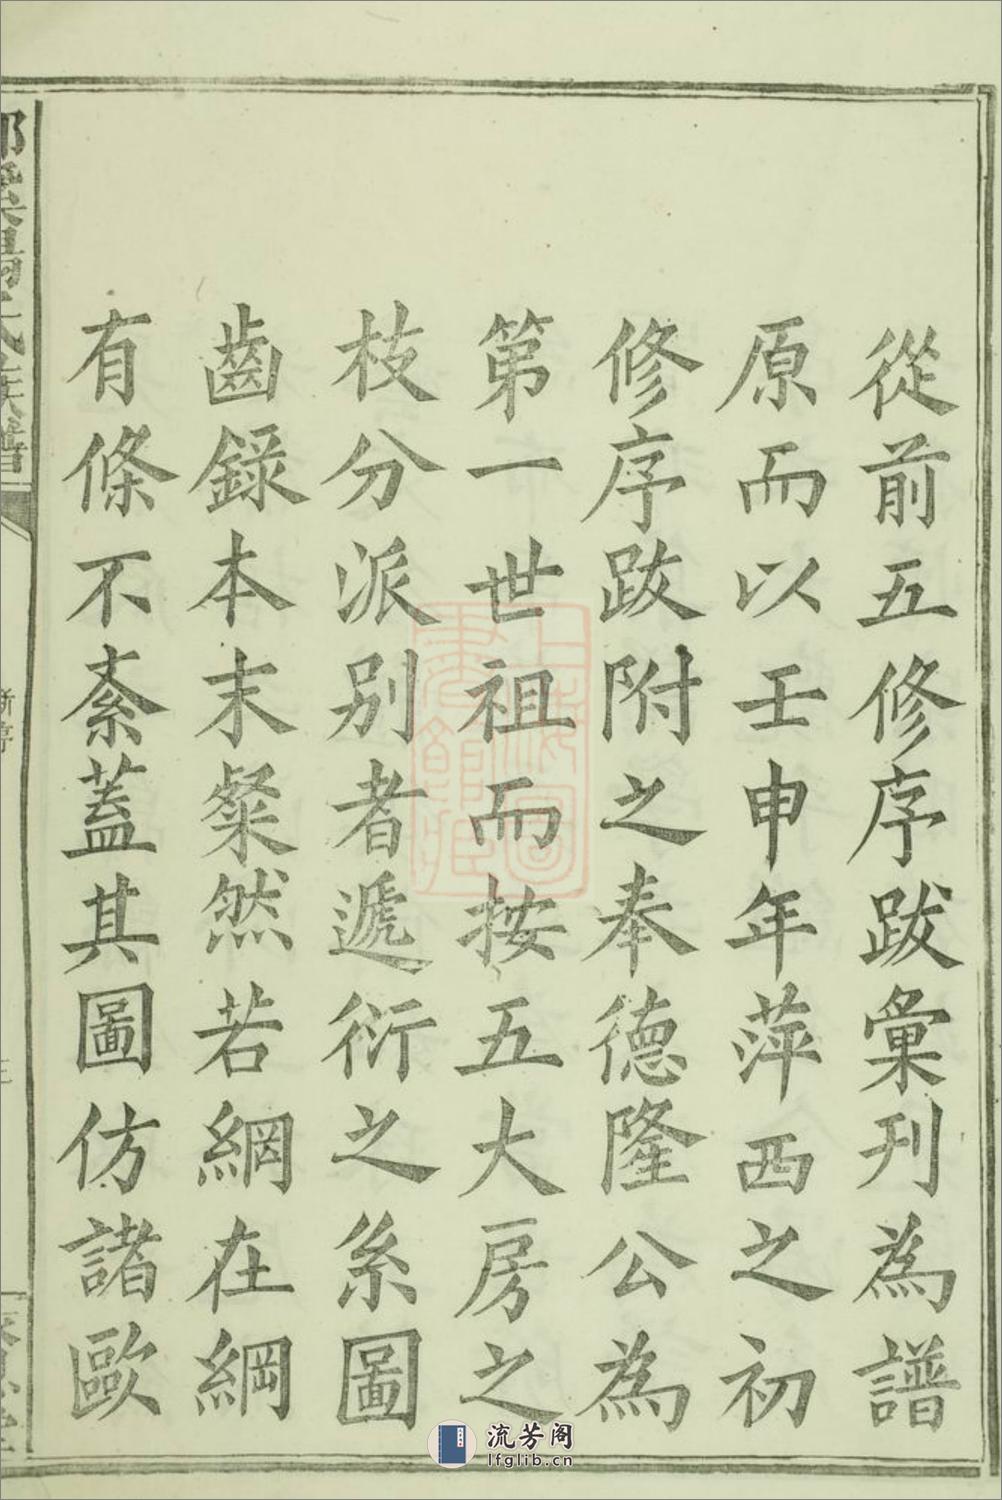 從前五修序跋彙刊為譜
原而以壬申年萍西之初
修序跋附之奉德隆公為
第一世祖而按五大房之
枝分派別者遞衍之系圖
齒錄本末粲然若網在綱
有條不紊蓋其圖仿諸歐
流芳阁
lfglib.cn